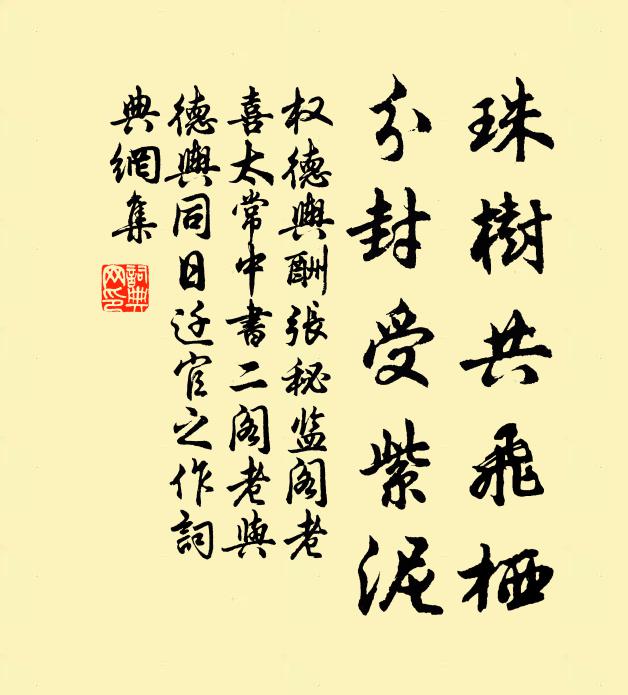 珠樹共飛栖
分封受紫泥
权德輿酬張秘监阁老
喜太常中書二阁老與
德輿同日迁官之作詞
典網集
詞典網印